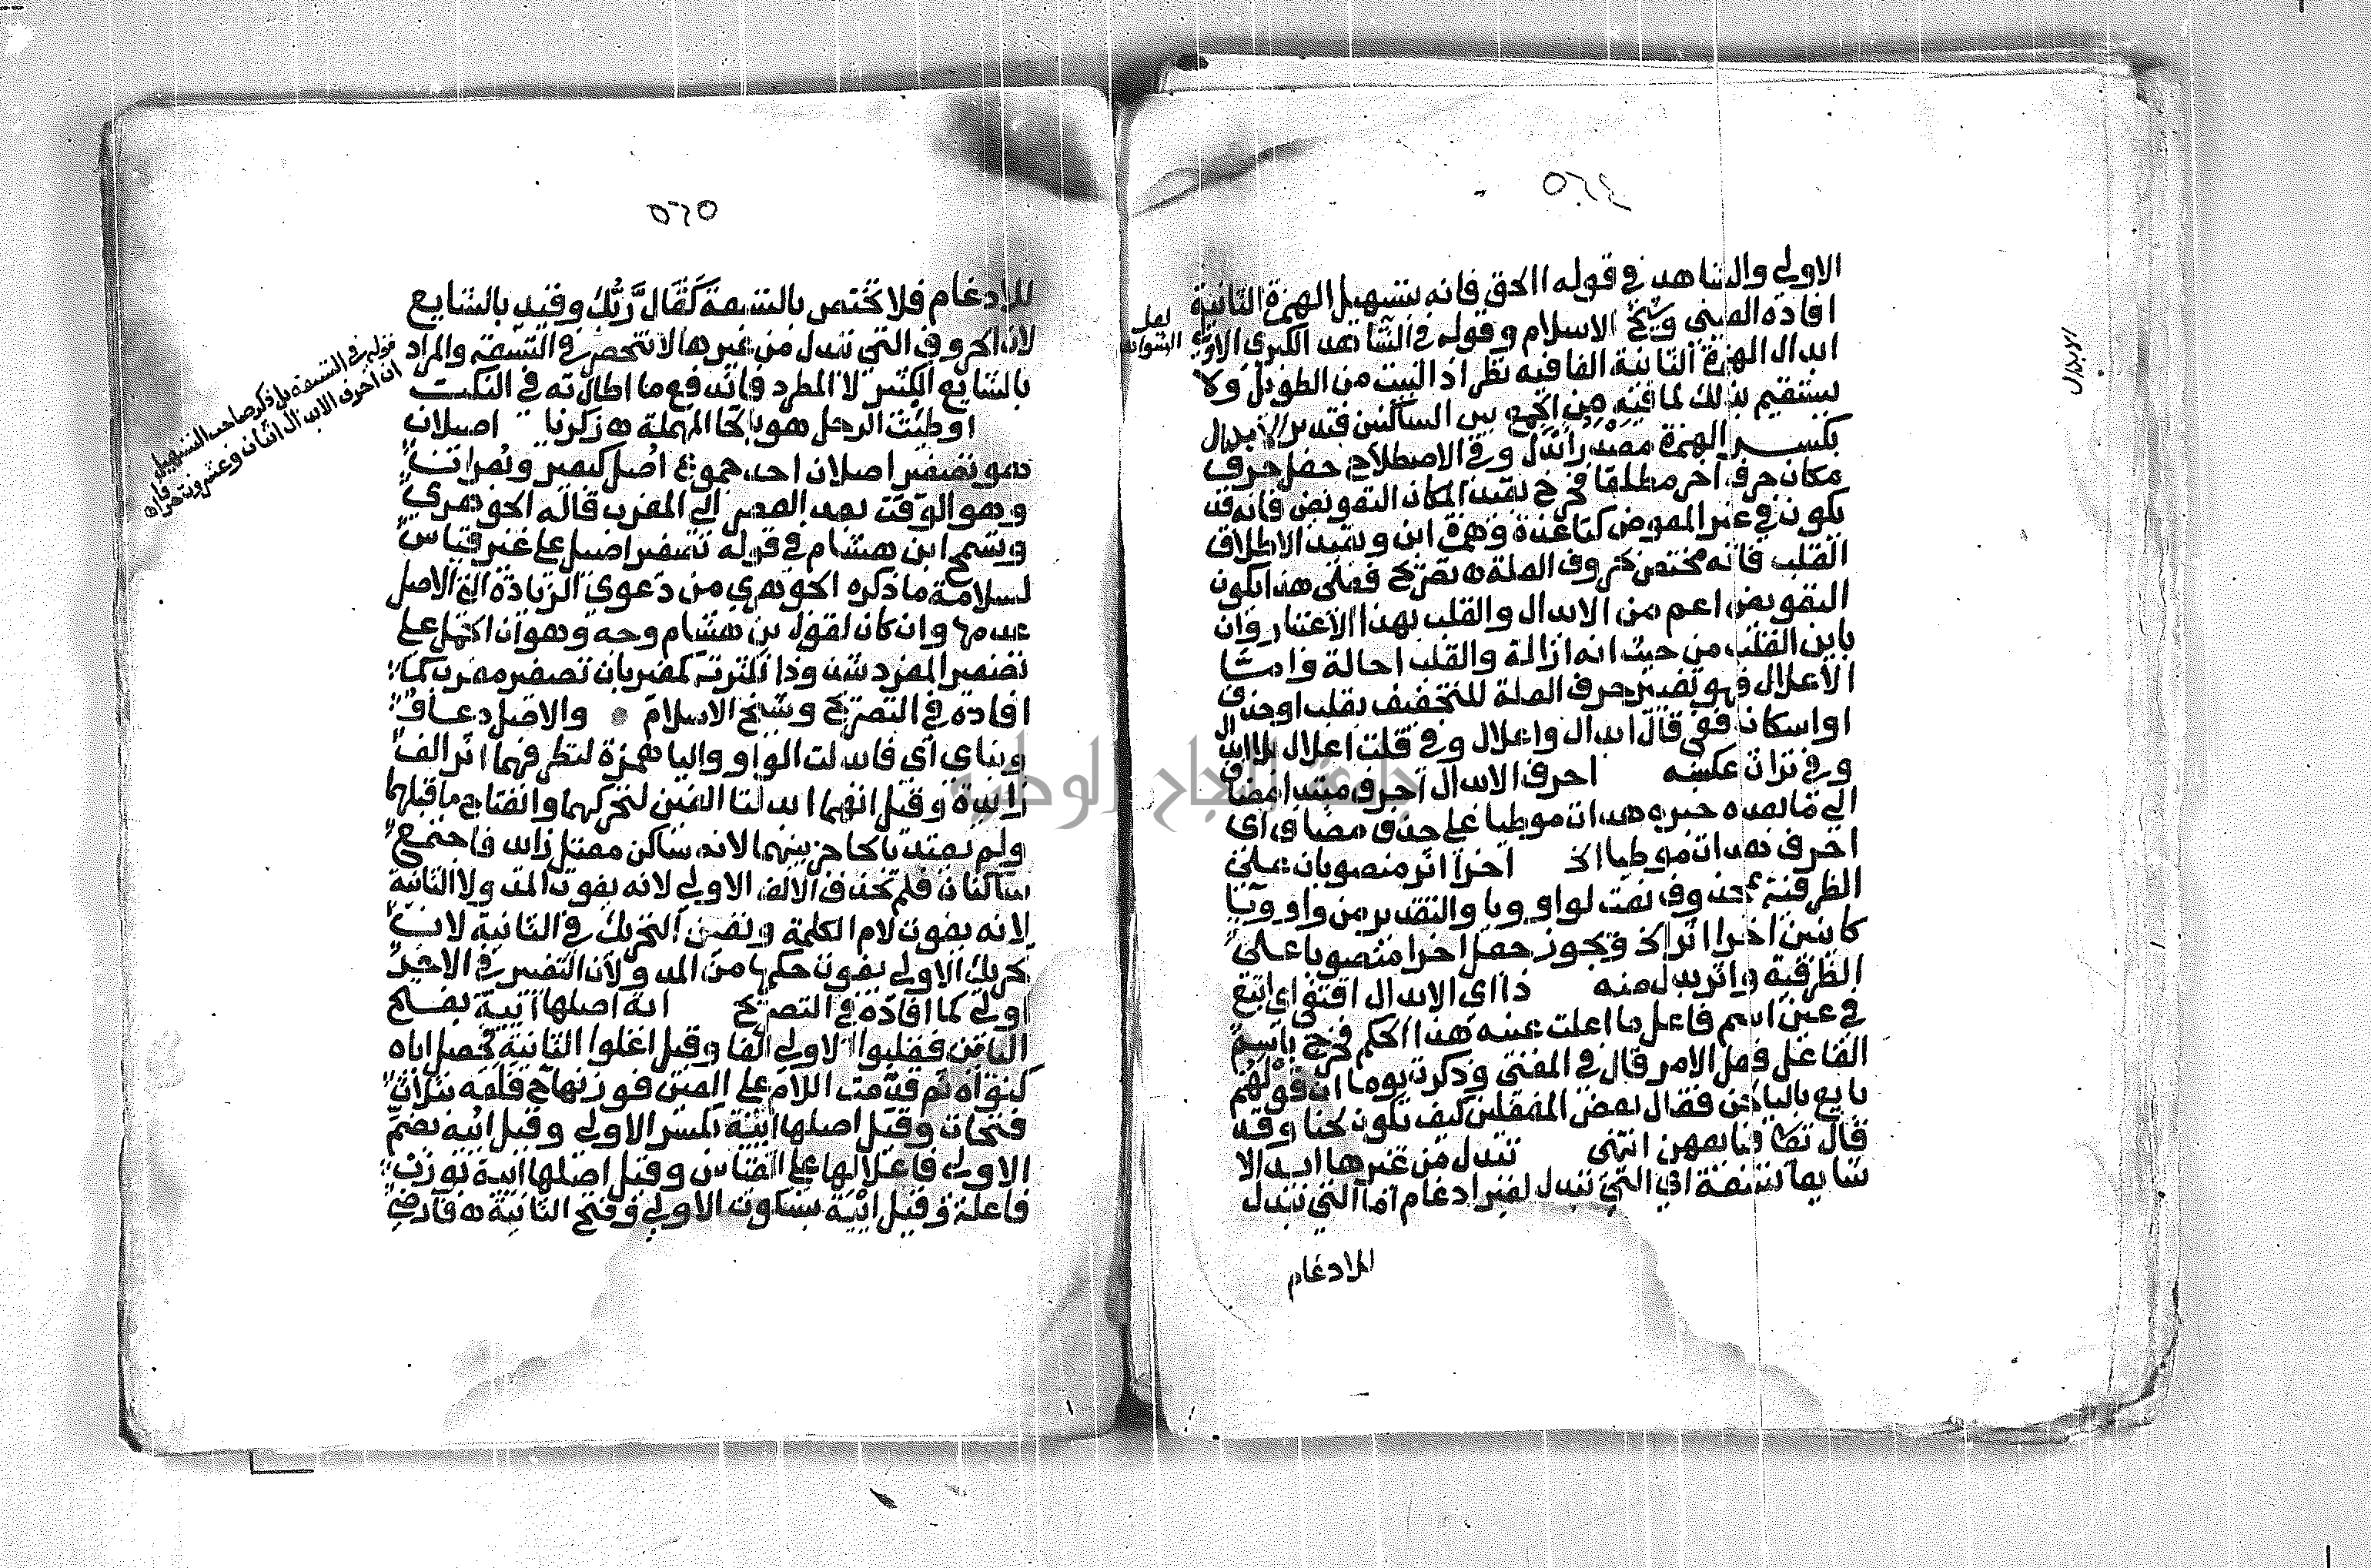 ٥٦٤
الاولي والشاهد في قوله االحق فانه بتسهيل الهمزة الثانية
افاده العيني وشيخ الاسلام وقوله في الشاهد الكبري الاولي
ابدال الهمزة الثانية الفا فيه نظر اذ البيت من الطويل ولا
يستقيم بذلك لما فيه من الجمع بين الساكنين فتدبر الابدال
بكسر الهمزة مصدر ابدل وفي الاصطلاح جعل حرف
مكان حرف اخر مطلقا فخرج بقيد المكان التعويض فانه قد
يكون في غير المعوض كتا عدة وهمزة ابن وبقيد الاطلاق
القلب فانه مختص بحروف العلة ه تصريح فعلى هذا يكون
التعويض اعم من الابدال والقلب بهذا الاعتبار وان
باين القلب من حيث انه ازالة والقلب احالة وامتا
الاعلال فهو تغيير حرف العلة للتخفيف بقلب او حذف
او اسكان ففي قال ابدال واعلال وفي قلت اعلال بلا ابدال
وفي تراث عكسه احرف الابدال احرف مبتدا مضاف
الي ما بعده خبره هدات موطيا علي حذف مضاف اي
احرف هدات موطيا الخ اخرا اثر منصوبان على
الظرفية بمحذوف نعت لواو ويا والتقدير من واو ويا
كاينين اخرا اثر الخ ويجوز جعل اخرا منصوبا على
الظرفية واثر بدل منه ذا اي الابدال اقتفى اي اتبع
في عين اسم فاعل ما اعلت عينه هذا الحكم فخرج باسم
الفاعل فعل الامر قال في المغني وذكرت يوما ان قولهم
بايع بالياء لحن فقال بعض المغفلين كيف تكون لحنا وقد
قال تعالى فبايعهن انتهى تبدل من غيرها ابدالا
شايعا تسعة اي التي تبدل لغير ادغام اما التي تبدل
للادغام
لعل
الشواهد
الابدال
٥٦٥
للادغام فلا تختص بالتسعة كقال رّبُّك وقيد بالشايع
لان الحروف التي تبدل من غيرها لا تنحصر في التسعة والمراد
بالشايع الكثير لا المطرد فاندفع ما اطال به في النكت
اوطيت الرحل هو بالحا المهملة ه زكريا اصيلان
هو تصغير اصلان احد جموع اصل كبعير وبعران
وهو الوقت بعد العصر الي المغرب قاله الجوهري
وتسمح ابن هشام في قوله تصغير اصيل علي غير قياس
لسلامة ما ذكره الجوهري من دعوي الزيادة التي الاصل
عدمها وان كان لقول بن هشام وجه وهو ان الحمل علي
تصغير المفرد شذوذا له مرتبة كمغيربان تصغير مغرب كما
افاده في التصريح وشيخ الاسلام والاصل دعاو
وبناي اي فابدلت الواو واليا همزة لتطرفهما اثر الف
زايدة وقيل انهما ابدلتا الفين لتحركهما وانفتاح ما قبلهما
ولم يعتد بالحاجز بينهما لانه ساكن معتل زايد فاجتمع
ساكنان فلم تحذف الالف الاولي لانه يفوت المد ولا الثانية
لانه يفوت لام الكلمة وتعين التحريك في الثانية لان
تحريك الاولي يفوت حكمها من المد ولان التغيير في الاخير
اولي كما افاده في التصريح اية اصلها ايية بفتح
الياين فقلبوا الاولي الفا وقيل اعلوا الثانية تحصل اياه
كنواة ثم قدمت اللام علي العين فوزنها ح فلعة بثلاث
فتحات وقيل اصلها ايية بكسر الاولي وقيل اييه بضم
الاولي فاعلالها علي القياس وقيل اصلها ايية بوزن
فاعلة وقيل ايية بسكون الاولي وفتح الثانية ه فارضي
قوله في التسعة بل ذكر صاحب التسهيل
ان احرف الابدال اثنان وعشرون